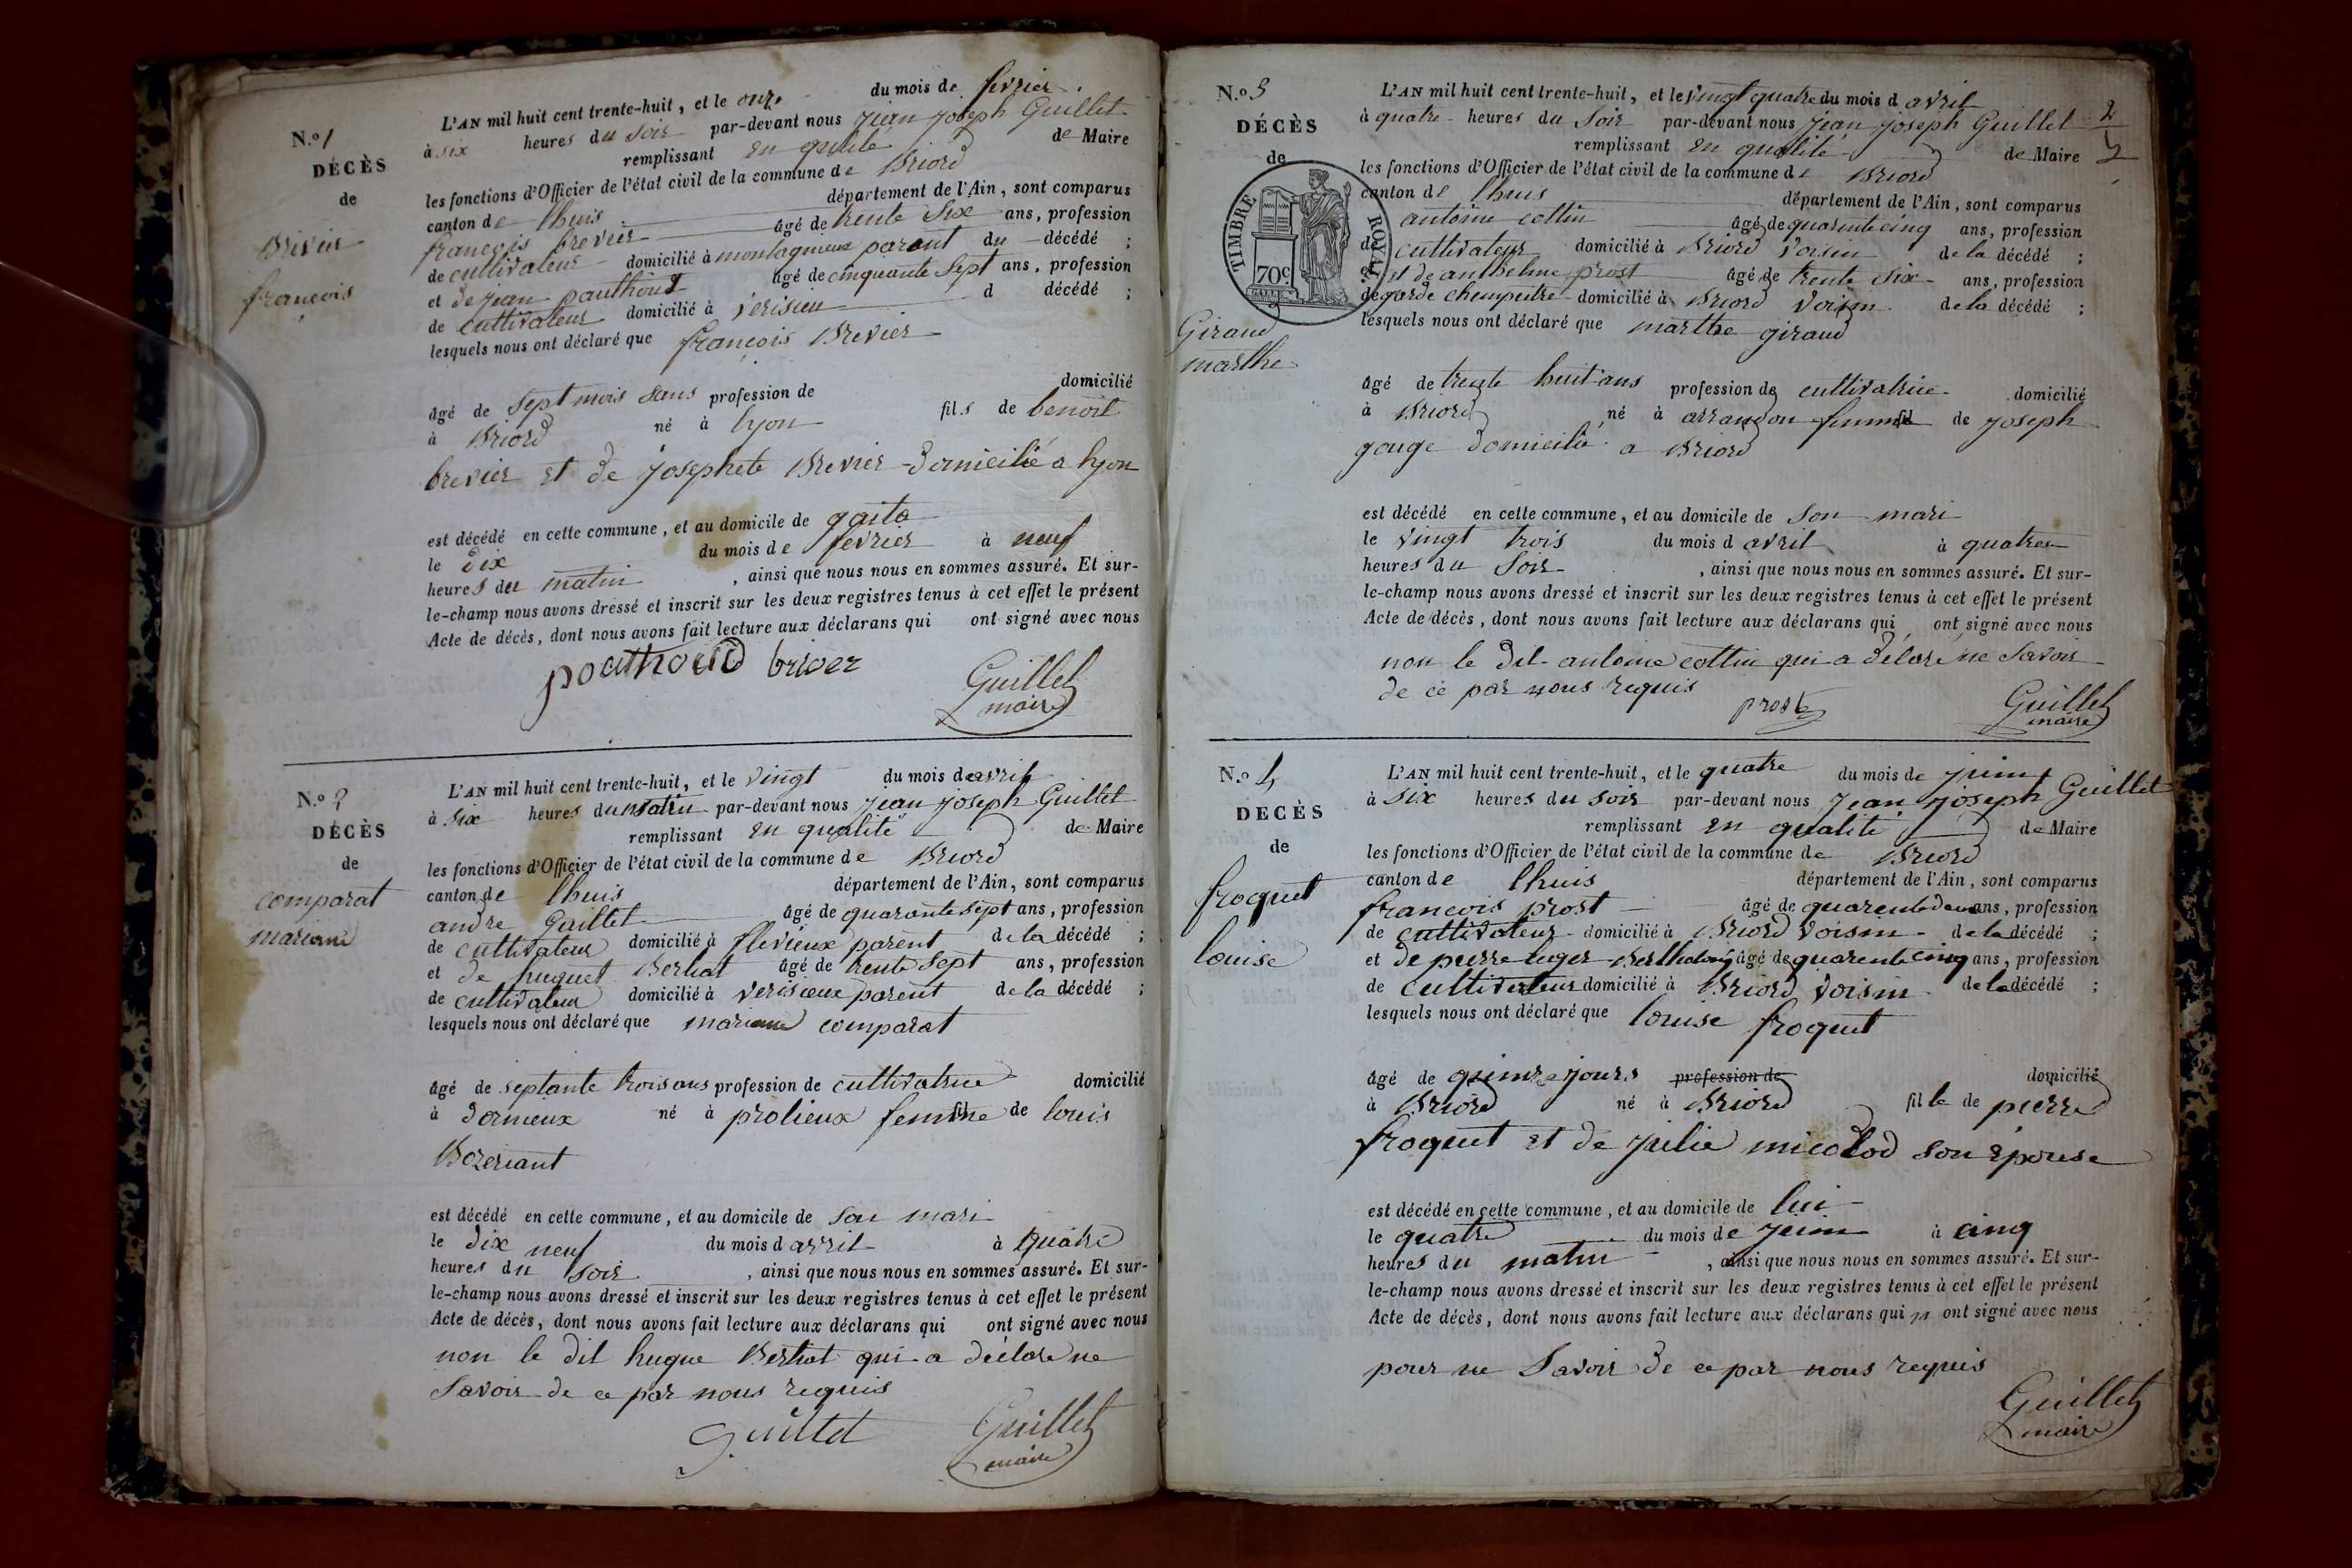 N.o 1
DÉCÈS
de
Brivier
francois
L'AN mil huit cent trente-huit, et le onze du mois de fevrier
à six heures du soir par-devant nous jean joseph Guillet
remplissant en qualité de Maire
les fonctions d'Officier de l'état civil de la commune de Briord
canton de lhuis département de l'Ain, sont comparus
francois brevier âgé de trente six ans, profession
de cultivateur domicilié à montagnieux parent du décédé ;
et de jean pauthoud âgé de cinquante sept ans, profession
de cultivateur domicilié à verisieu d décédé ;
lesquels nous ont déclaré que francois Brevier
âgé de sept mois sans profession de domicilié
à Briord né à lyon fils de benoit
brevier et de josephete Brevier domicilié a lyon
est décédé en cette commune, et au domicile de
le dix du mois de fevrier à neuf
heures du matin , ainsi que nous nous en sommes assuré. Et sur-
le-champ nous avons dressé et inscrit sur les deux registres tenus à cet effet le présent
Acte de décès, dont nous avons fait lecture aux déclarans qui ont signé avec nous
poathoud briver Guillet
maire
N.o 2
DÉCÈS
de
comparat
mariane
L'AN mil huit cent trente-huit, et le vingt du mois de avril
à six heures du matin par-devant nous jean joseph Guillet
remplissant en qualité de Maire
les fonctions d'Officier de l'état civil de la commune de Briord
canton de lhuis département de l'Ain, sont comparus
andre Guillet âgé de quarante sept ans, profession
de cultivateur domicilié à flevieux parent de la décédé ;
et de huguet Berhat âgé de trente sept ans, profession
de cultivateur domicilié à verisieux parent de la décédé ;
lesquels nous ont déclaré que mariane comparat
âgé de septante trois ans profession de cultivatrice domicilié
à dornieux né à prolieux femme de louis
Bozeriant
est décédé en cette commune, et au domicile de son mari
le dix neuf du mois d avril à quatre
heures du soir , ainsi que nous nous en sommes assuré. Et sur-
le-champ nous avons dressé et inscrit sur les deux registres tenus à cet effet le présent
Acte de décès, dont nous avons fait lecture aux déclarans qui ont signé avec nous
non le dit hugue Berhat qui a déclare ne
Savoir de ce par nous requis
guillet Guillet
maire
N.o 3
DÉCÈS
de
TIMBRE ROYAL
70c
Giraud
marthe
L'AN mil huit cent trente-huit, et le vingt quatre du mois d avril
à quatre heures du soir par-devant nous jean joseph Guillet
remplissant en qualité de Maire
les fonctions d'Officier de l'état civil de la commune de Briord
canton de lhuis département de l'Ain, sont comparus
antoine cottin âgé de quarente cinq ans, profession
de cultivateur domicilié à Briord voisin de la décédé ;
et de anthelme prost âgé de trente six ans, profession
de garde chempetre domicilié à Briord voisin de la décédé ;
lesquels nous ont déclaré que marthe giraud
âgé de trente huit ans profession de cultivatrice domicilié
à Briord né à arrandon femme de joseph
gouge domicilié a Briord
est décédé en cette commune, et au domicile de son mari
le vingt trois du mois d avril à quatre
heures du soir , ainsi que nous nous en sommes assuré. Et sur-
le-champ nous avons dressé et inscrit sur les deux registres tenus à cet effet le présent
Acte de décès, dont nous avons fait lecture aux déclarans qui ont signé avec nous
non le dit antoine cottin qui a déclaré ne Savoir
de ce par nous requis
prost Guillet
maire
N.o 4
DÉCÈS
de
froquet
louise
L'AN mil huit cent trente-huit, et le quatre du mois de juin
à six heures du soir par-devant nous jean joseph Guillet
remplissant en qualité de Maire
les fonctions d'Officier de l'état civil de la commune de Briord
canton de lhuis département de l'Ain, sont comparus
francois prost âgé de quarente deux ans, profession
de cultivateur domicilié à Briord voisin de la décédé ;
et de pierre âgé de quarente cinq ans, profession
de cultivateur domicilié à Briord voisin de la décédé ;
lesquels nous ont déclaré que louise froquet
âgé de quinze jours profession de domicilié
à Briord né à Briord fille de pierre
froquet et de julie micolod son épouse
est décédé en cette commune, et au domicile de lui
le quatre du mois de juin à cinq
heures du matin , ainsi que nous nous en sommes assuré. Et sur-
le-champ nous avons dressé et inscrit sur les deux registres tenus à cet effet le présent
Acte de décès, dont nous avons fait lecture aux déclarans qui n ont signé avec nous
pour ne Savoir de ce par nous requis
Guillet
maire